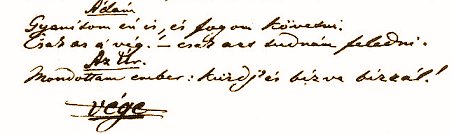 Ádám
Gyanítom én is, és fogom követni.
Csak az a vég. – csak azt tudnám feledni.
Az Úr.
Mondottam ember: küzdj' és bízva bizzál!
Vége